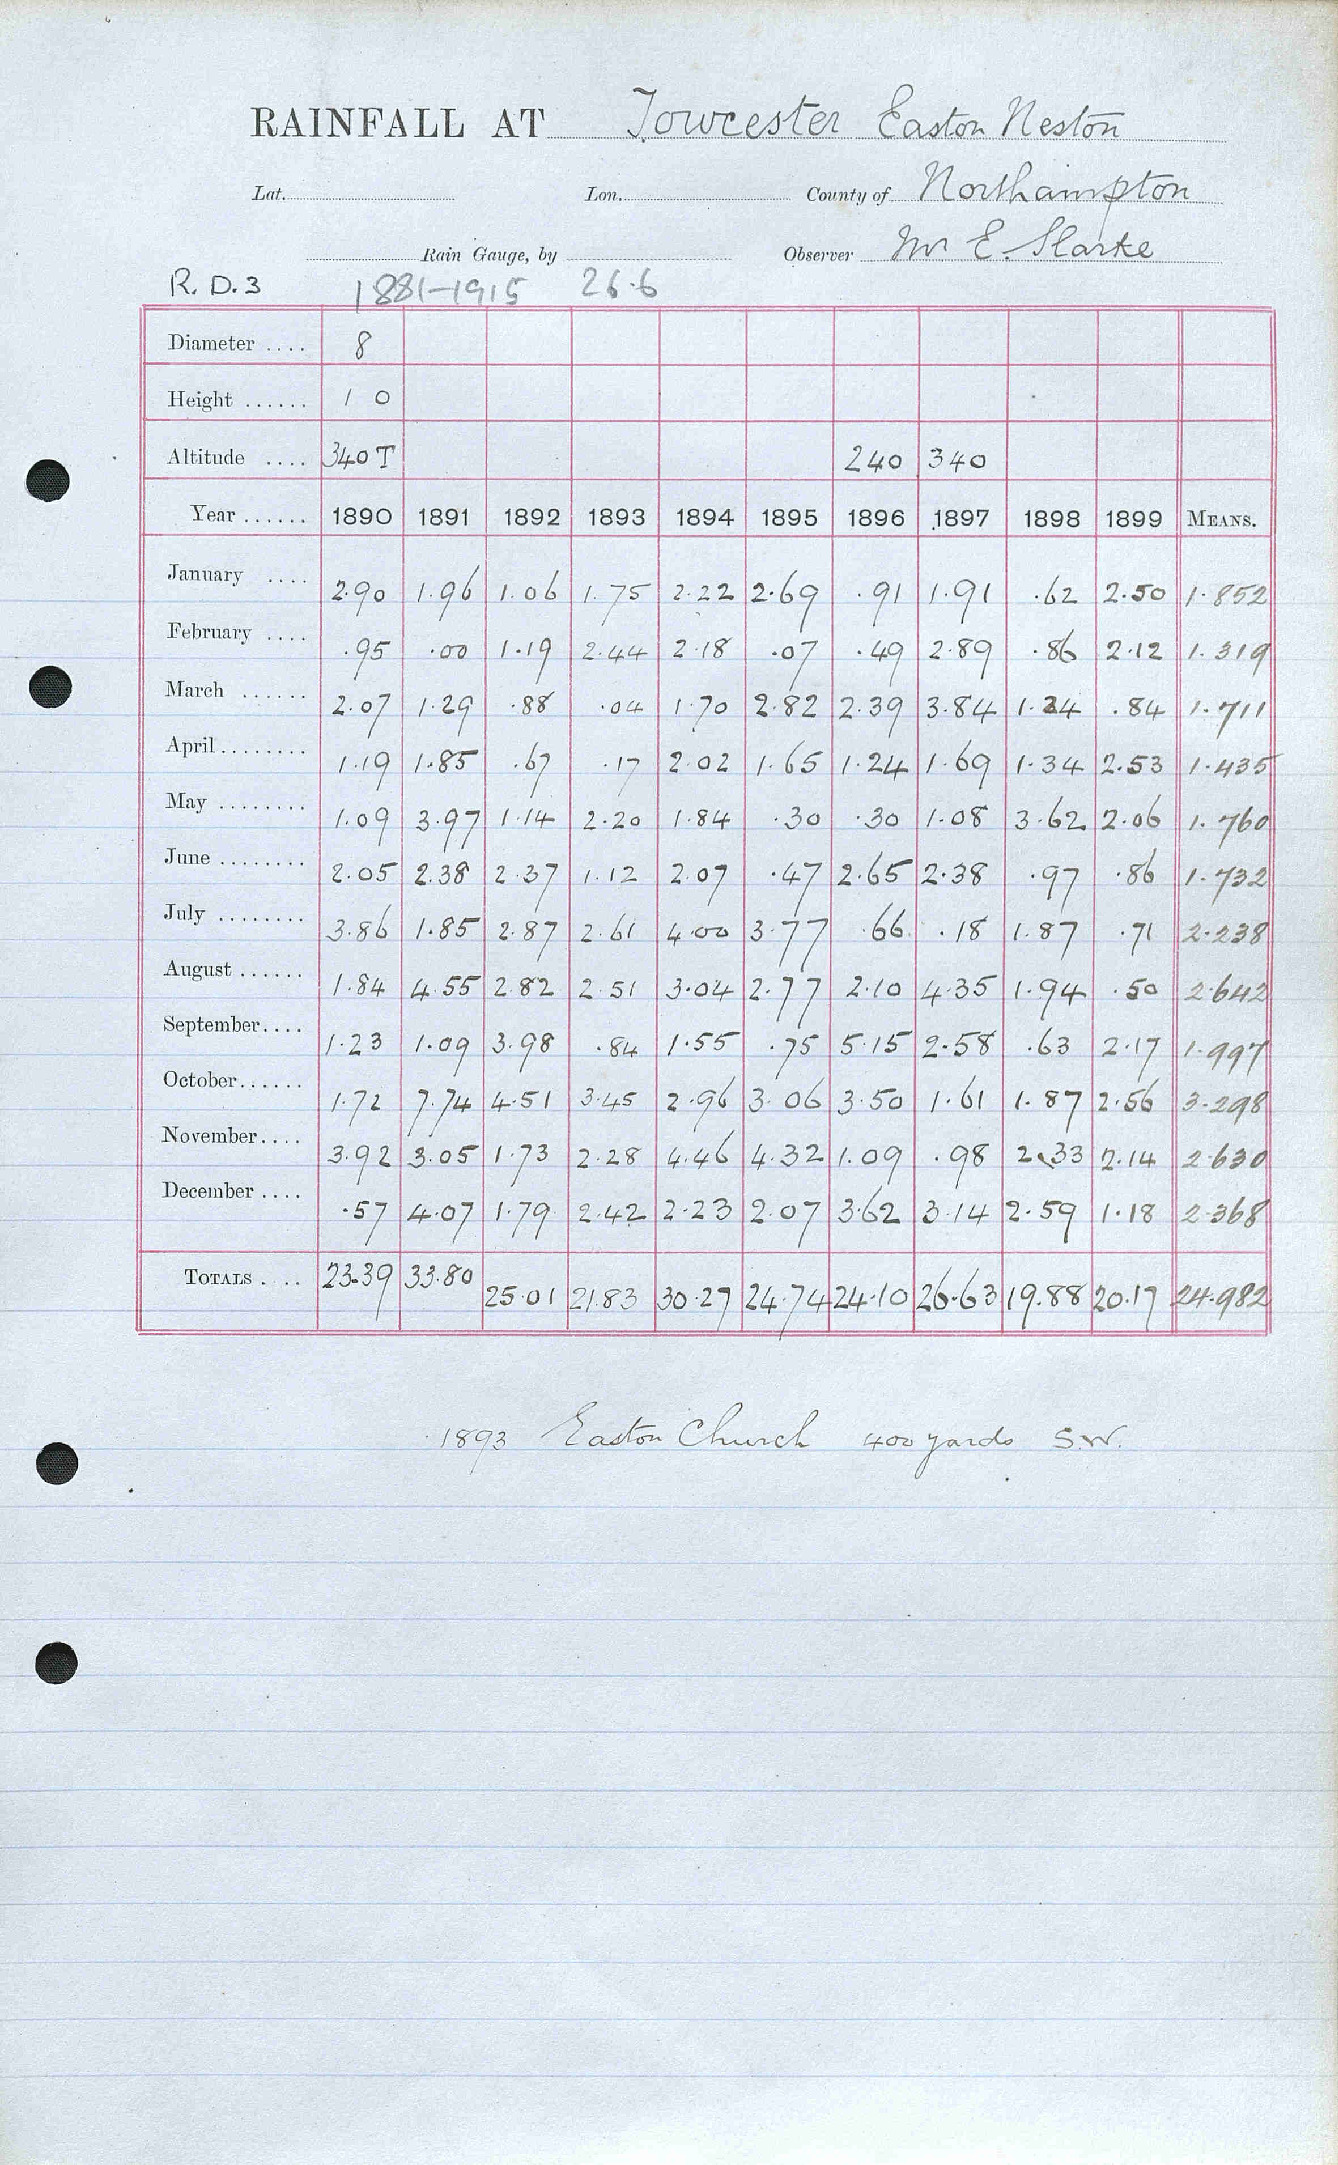 RAINFALL AT Towcester Easton Neston
Lat. Lon. County of Northampton
Rain Gauge, by Observer Mr E. Slarke
R. D. 3 1881-1915 26.6
Diameter .... 8
Height ...... 1 0
Altitude .... 340 T 240 340
Year ...... 1890 1891 1892 1893 1894 1895 1896 1897 1898 1899 MEANS.
January .... 2.90 1.96 1.06 1.75 2.22 2.69 .91 1.91 .62 2.50 1.852
February .... .95 .00 1.19 2.44 2.18 .07 .49 2.89 .86 2.12 1.319
March ...... 2.07 1.29 .88 .04 1.70 2.82 2.39 3.84 1.24 .84 1.711
April ........ 1.19 1.85 .67 .17 2.02 1.65 1.24 1.69 1.34 2.53 1.435
May ........ 1.09 3.97 1.14 2.20 1.84 .30 .30 1.08 3.62 2.06 1.760
June ........ 2.05 2.38 2.37 1.12 2.07 .47 2.65 2.38 .97 .86 1.732
July ........ 3.86 1.85 2.87 2.61 4.00 3.77 .66 .18 1.87 .71 2.238
August ...... 1.84 4.55 2.82 2.51 3.04 2.77 2.10 4.35 1.94 .50 2.642
September.... 1.23 1.09 3.98 .84 1.55 .75 5.15 2.58 .63 2.17 1.997
October...... 1.72 7.74 4.51 3.45 2.96 3.06 3.50 1.61 1.87 2.56 3.298
November.... 3.92 3.05 1.73 2.28 4.46 4.32 1.09 .98 2.33 2.14 2.630
December .... .57 4.07 1.79 2.42 2.23 2.07 3.62 3.14 2.59 1.18 2.368
TOTALS .... 23.39 33.80 25.01 21.83 30.27 24.74 24.10 26.63 19.88 20.17 24.982
1893 Easton Church 400 yards S.W.